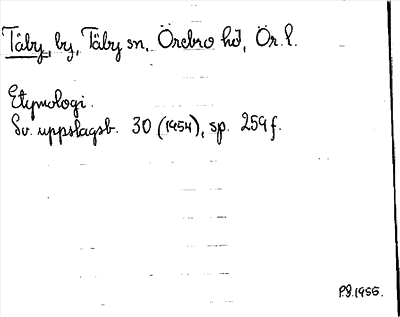 Täby, by, Täby sn, Örebro hd, Ör. l.
Etymologi.
Sv. uppslagsb. 30 (1954), sp. 259 f.
P.J. 1955.